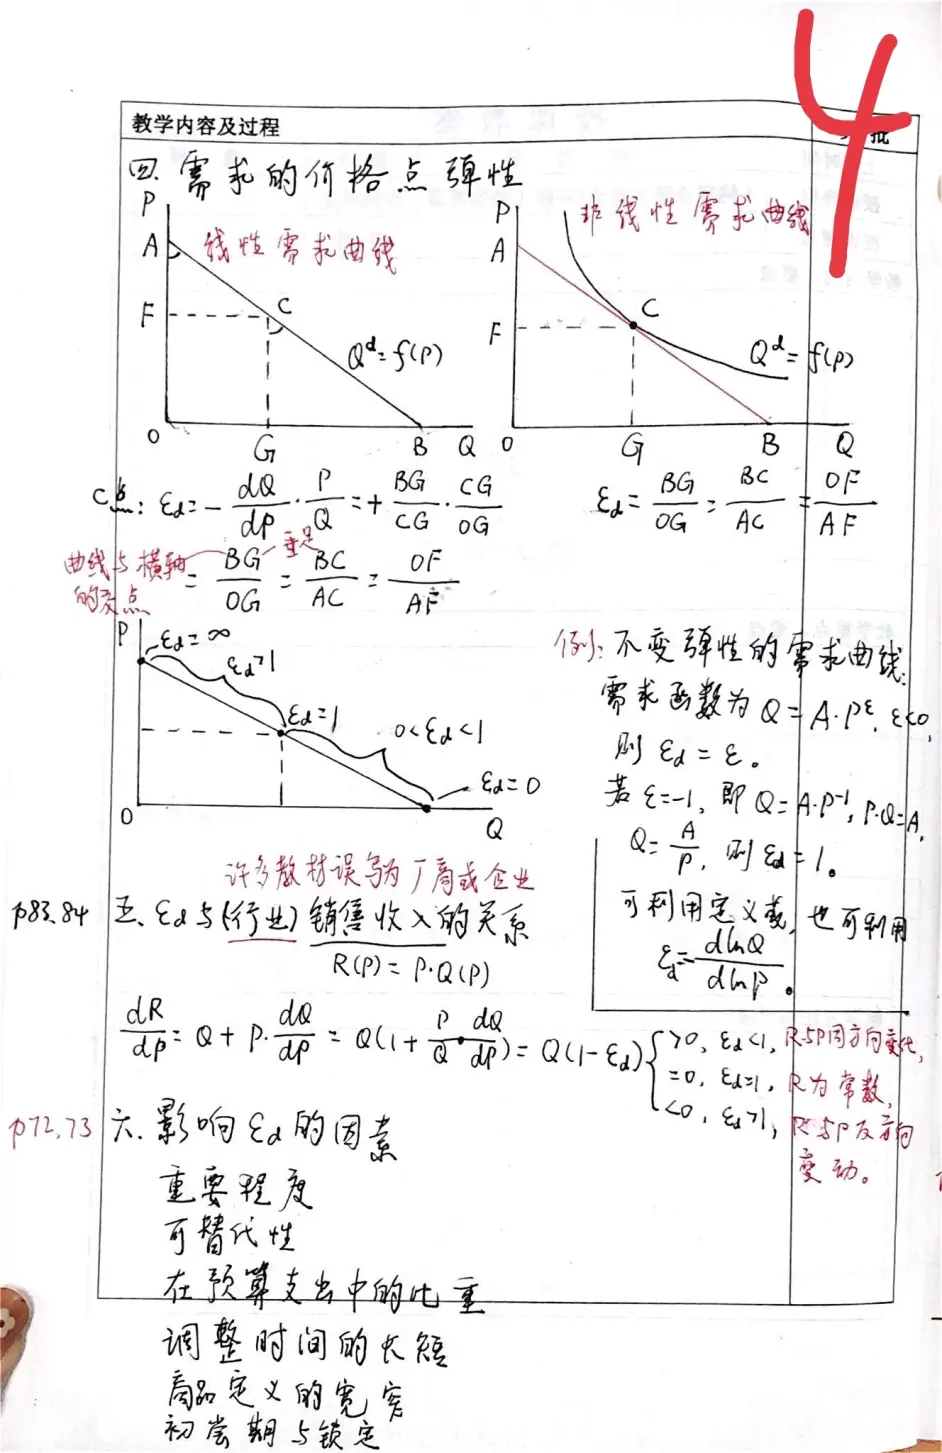 4
教学内容及过程
批
四、需求的价格点弹性
P
A
F
O
G
B
Q
C
线性需求曲线
Q^d=f(P)
P
A
F
O
G
B
Q
C
非线性需求曲线
Q^d=f(P)
C点: εd=-dQ/dP·P/Q=+BG/CG·CG/OG
=BG/OG=BC/AC=OF/AF
曲线与横轴
的交点
垂足
εd=BG/OG=BC/AC=OF/AF
P
εd=∞
εd>1
εd=1
0<εd<1
εd=0
O
Q
例:不变弹性的需求曲线:
需求函数为Q=A·P^ε, ε<0,
则εd=ε。
若ε=-1, 即Q=A·P^-1, P·Q=A,
Q=A/P, 则εd=1。
可利用定义或, 也可利用
εd=dlnQ/dlnP。
许多教材误写为厂商或企业
p83.84 五、εd与(行业)销售收入的关系
R(P)=P·Q(P)
dR/dP=Q+P·dQ/dP=Q(1+P/Q·dQ/dP)=Q(1-εd){
>0, εd<1, R与P同方向变化,
=0, εd=1, R为常数,
<0, εd>1, R与P反方向
变动。
p72.73 六、影响εd的因素
重要程度
可替代性
在预算支出中的比重
调整时间的长短
商品定义的宽窄
初尝期与锁定